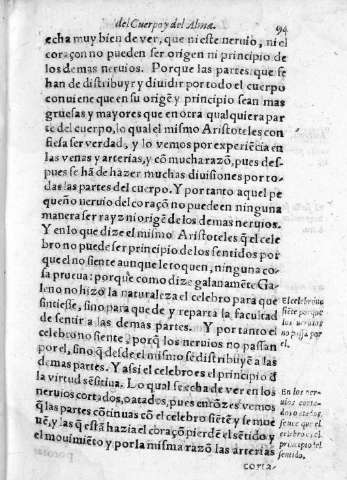 del Cuerpo y del Alma.
94
echa muy bien de ver, que ni este neruio, ni el
coraçon no pueden ser origen ni principio de
los demas neruios. Porque las partes que se
han de distribuyr y diuidir por todo el cuerpo
conuiene que en su origẽ y principio sean mas
gruesas y mayores que en otra qualquiera par
te del cuerpo, lo qual el mismo Aristoteles con
fiesa ser verdad, y lo vemos por experiẽcia en
las venas y arterias, y cõ mucha razõ, pues des-
pues se hã de hazer muchas diuisiones por to-
das las partes del cuerpo. Y por tanto aquel pe
queño neruio del coraçõ no puede en ninguna
manera ser rayz ni origẽ de los demas neruios.
Y en lo que dize el mismo Aristoteles q̃ el cele
bro no puede ser principio de los sentidos por
que el no siente aunque le toquen, ninguna co-
sa prueua: porque como dize galanamẽte Ga-
leno no hizo la naturaleza el celebro para que
sintiesse, sino para que de y reparta la facultad
de sentir a las demas partes. Y por tanto el
celebro no siente, porq̃ los neruios no passan
por el, sino q̃ desde el mismo se distribuyẽ a las
demas partes. Y assi el celebro es el principio d̃
la virtud sẽsitiua. Lo qual se echa de ver en los
neruios cortados, o atados, pues entõzes vemos
q̃ las partes cõtinuas cõ el celebro siẽtẽ y se mue
uẽ, y las q̃ estã hazia el coraçõ pierdẽ el sẽtido y
el mouimiẽto y por la misma razõ las arterias
corta-
El celebro no
siẽte porque
los neruios
no passa por
el.
En los ner-
uios corta-
do o atados,
siente que el
celebro es el
principio del
sentido.